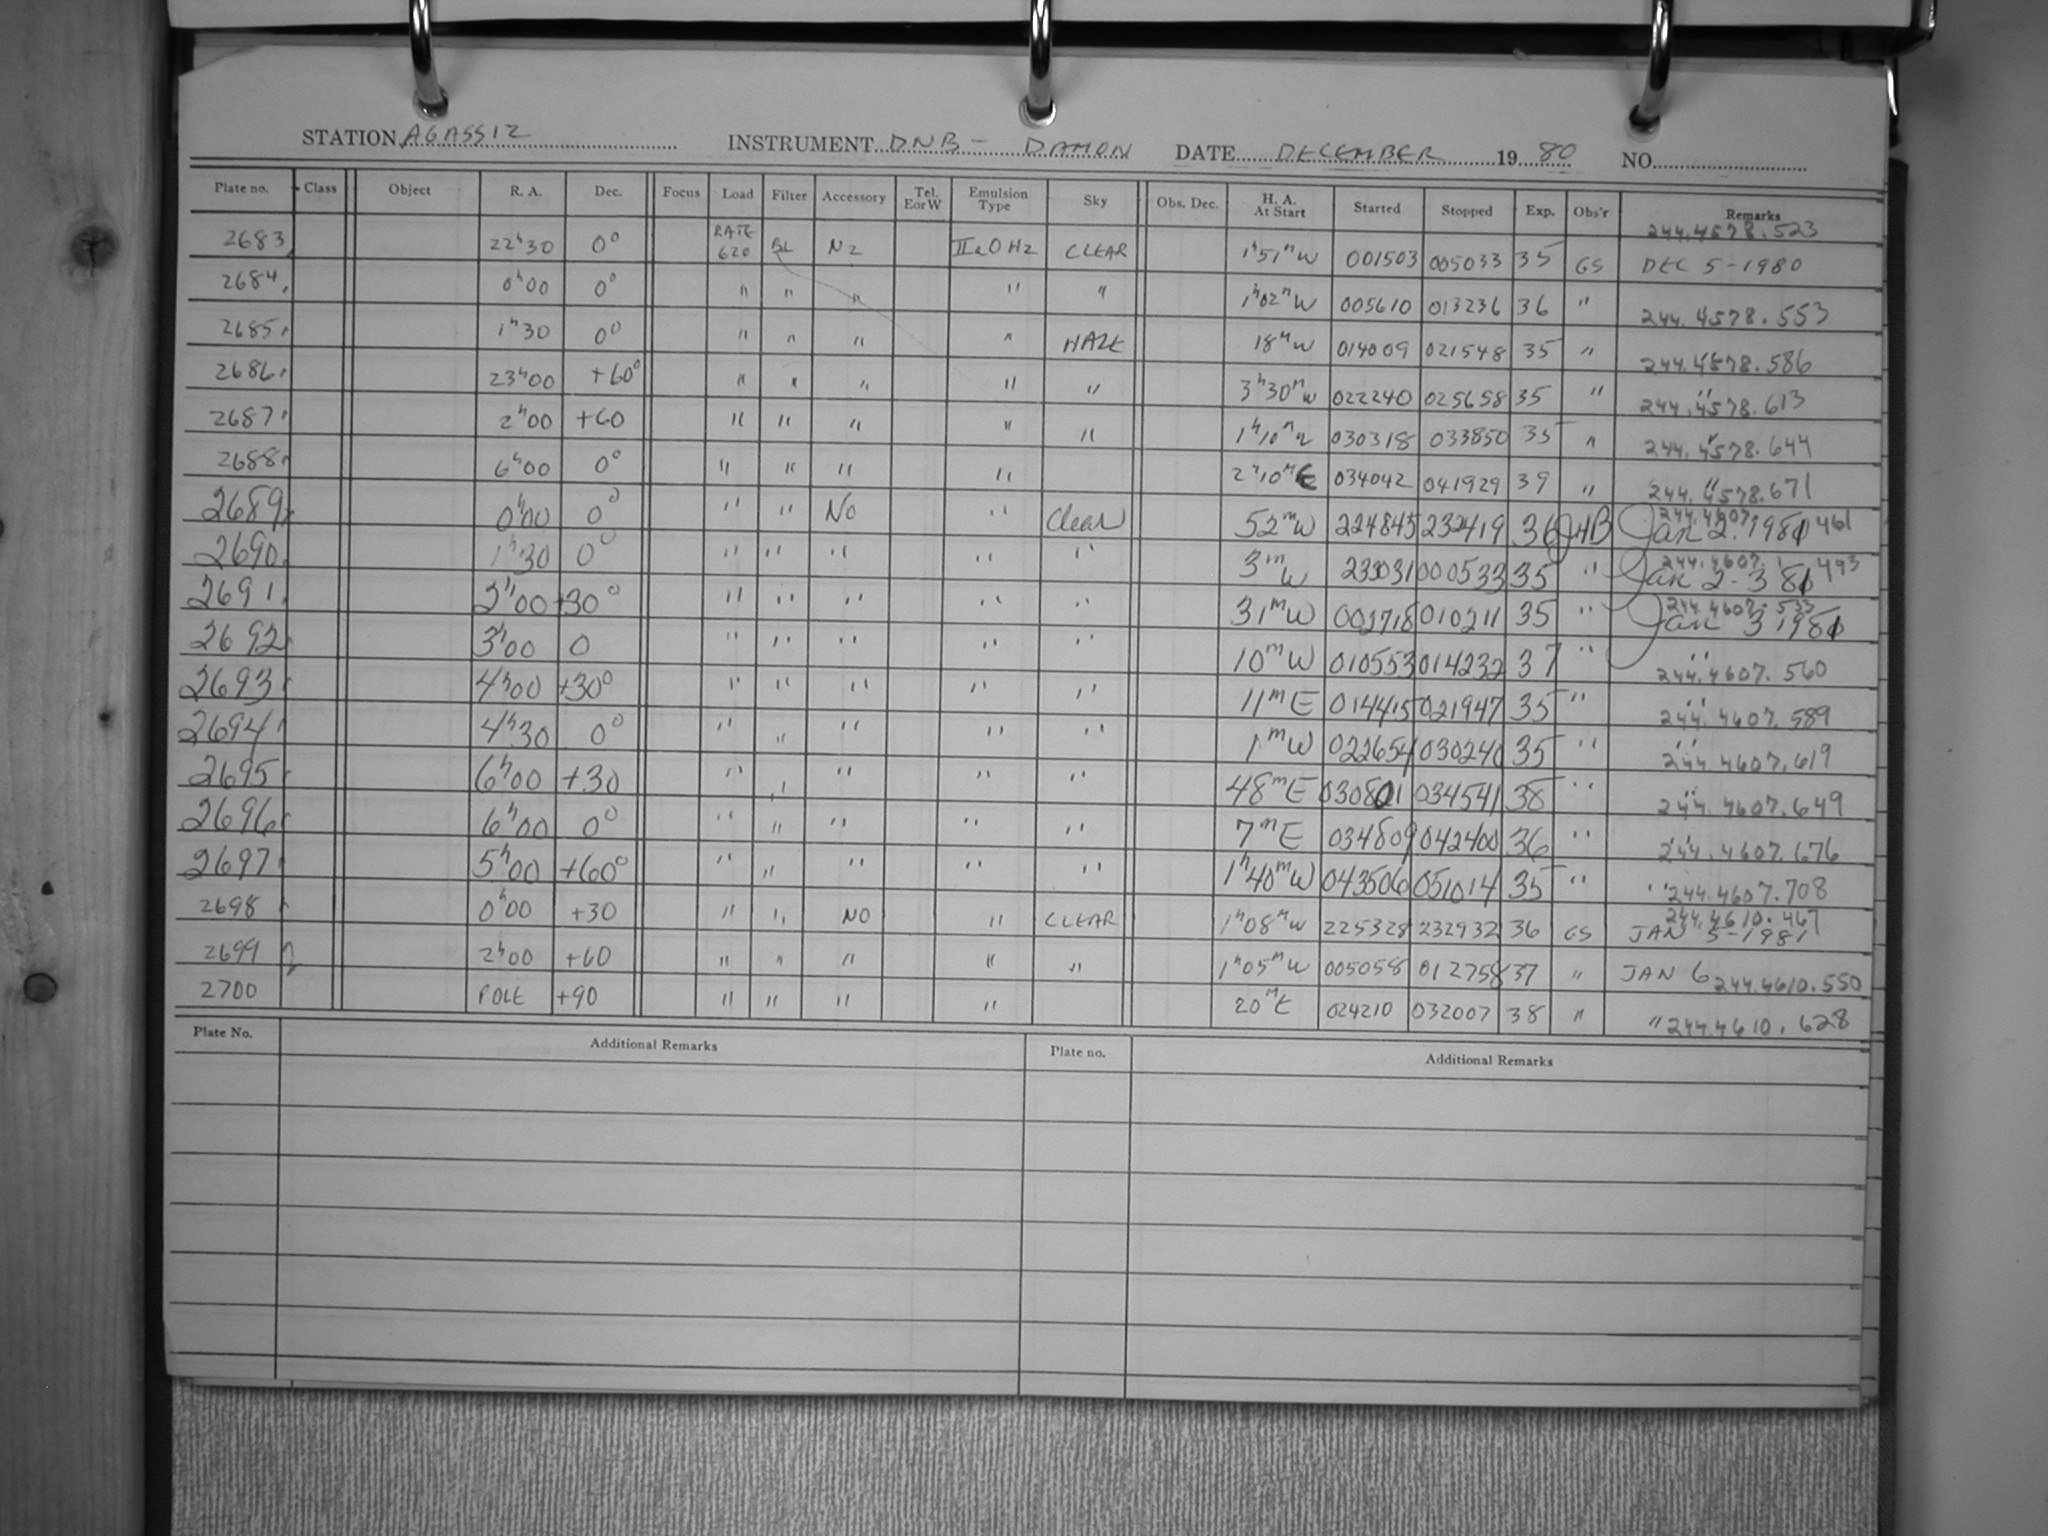 STATION AGASSIZ INSTRUMENT DNB - DAMON DATE DECEMBER 19 80 NO.
Plate no. Class Object R. A. Dec. Focus Load Filter Accessory Tel. E or W Emulsion Type Sky Obs. Dec. H. A. At Start Started Stopped Exp. Obs'r Remarks
2683 22ʰ30 0° RATE 620 BL N2 IIaO H2 CLEAR 1ʰ51ᵐW 001503 005033 35 GS 244.4578.523 DEC 5-1980
2684 0ʰ00 0° " " " " " 1ʰ02ᵐW 005610 013236 36 " 244.4578.553
2685 1ʰ30 0° " " " " HAZE 18ᵐW 014009 021548 35 " 244.4578.586
2686 23ʰ00 +60° " " " " " 3ʰ30ᵐW 022240 025658 35 " " 244.4578.613
2687 2ʰ00 +60 " " " " " 1ʰ10ᵐ 030318 033850 35 " " 244.4578.644
2688 6ʰ00 0° " " " " 2ʰ10ᵐE 034042 041929 39 " " 244.4578.671
2689 0ʰ00 0° " " NO " Clear 52ᵐW 224845 232419 36 JAB 244.4607.461 Jan 2. 1981
2690 1ʰ30 0° " " " " " 3ᵐW 233031 000533 35 " 244.4607.493 Jan 2-3 81
2691 2ʰ00 +30° " " " " " 31ᵐW 002718 010211 35 " 244.4607.533 Jan 3 1981
2692 3ʰ00 0 " " " " " 10ᵐW 010553 014232 37 " " 244.4607.560
2693 4ʰ00 +30° " " " " " 11ᵐE 014415 021947 35 " " 244.4607.589
2694 4ʰ30 0° " " " " " 1ᵐW 022654 030240 35 " " 244.4607.619
2695 6ʰ00 +30 " " " " " 48ᵐE 030801 034541 38 " " 244.4607.649
2696 6ʰ00 0° " " " " " 7ᵐE 034809 042400 36 " " 244.4607.676
2697 5ʰ00 +60° " " " " " 1ʰ40ᵐW 043506 051014 35 " " 244.4607.708
2698 0ʰ00 +30 " " NO " CLEAR 1ʰ08ᵐW 225328 232932 36 GS 244.4610.467 JAN 5-1981
2699 2ʰ00 +60 " " " " " 1ʰ05ᵐW 005058 012758 37 " JAN 6 244.4610.550
2700 POLE +90 " " " " 20ᵐE 024210 032007 38 " " 244.4610.628
Plate No. Additional Remarks Plate no. Additional Remarks